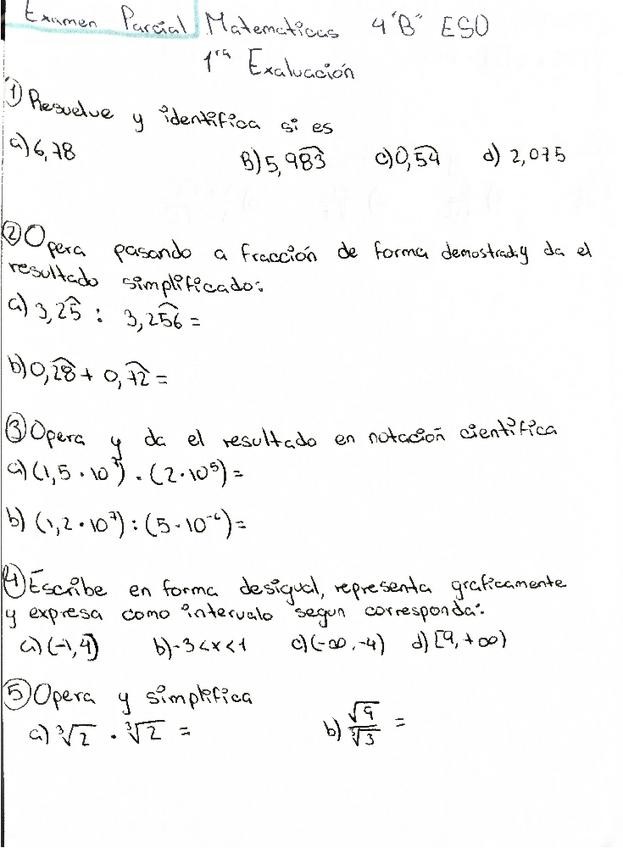 Examen Parcial Matematicas 4 "B" ESO
1ra Evaluación
① Resuelve y identifica si es
a) 6,78 B) 5,98͡3 c) 0,5͡4 d) 2,075
② Opera pasando a fracción de forma demostrad. y da el
resultado simplificado:
a) 3,2͡5 : 3,2͡56 =
b) 0,2͡8 + 0,7͡2 =
③ Opera y da el resultado en notación cientifica
a) (1,5 · 10⁷) · (2 · 10⁵) =
b) (1,2 · 10⁷) : (5 · 10⁻⁶) =
④ Escribe en forma desigual, representa graficamente
y expresa como intervalo segun corresponda:
a) (-1, 4] b) -3 < x < 1 c) (-∞, -4) d) [9, +∞)
⑤ Opera y simplifica
a) ³√2 · ³√2 = b) √9 / ³√3 =